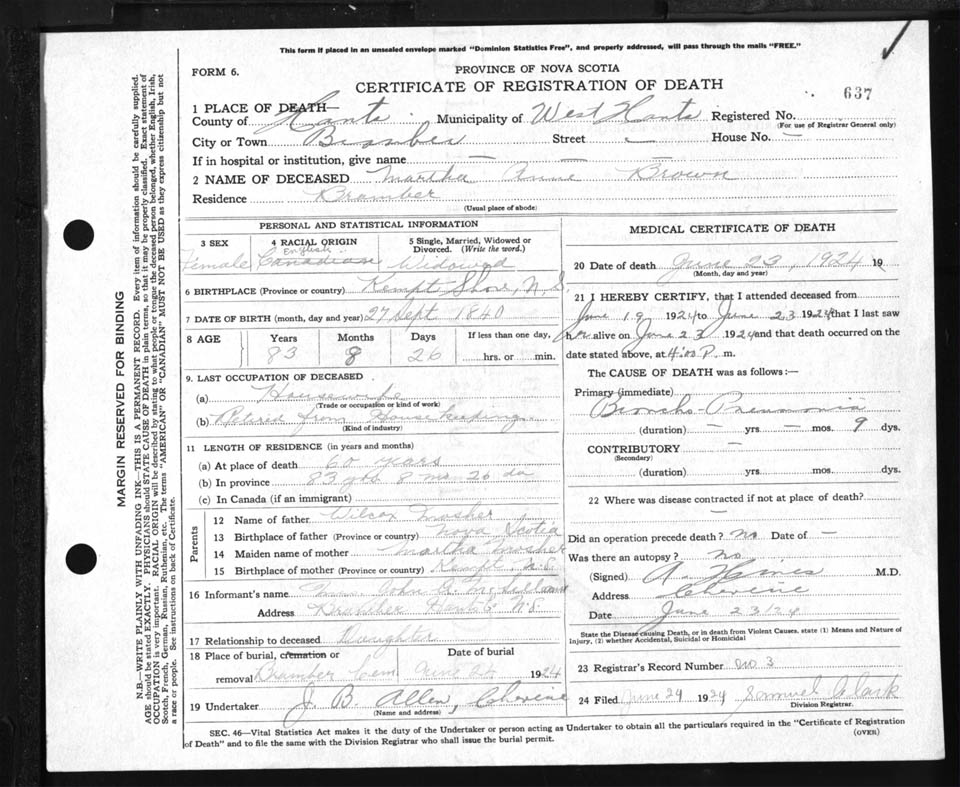 This form if placed in an unsealed envelope marked "Dominion Statistics Free", and properly addressed, will pass through the mails "FREE."
FORM 6.
PROVINCE OF NOVA SCOTIA
CERTIFICATE OF REGISTRATION OF DEATH
637
1 PLACE OF DEATH—
County of Hants Municipality of West Hants Registered No.
(For use of Registrar General only)
City or Town Bramber Street — House No. —
If in hospital or institution, give name — — —
2 NAME OF DECEASED Martha Anne Brown
Residence Bramber
(Usual place of abode)
PERSONAL AND STATISTICAL INFORMATION
3 SEX 4 RACIAL ORIGIN 5 Single, Married, Widowed or Divorced. (Write the word.)
Female English Canadian Widowed
6 BIRTHPLACE (Province or country) Kempt Shore, N.S.
7 DATE OF BIRTH (month, day and year) 27 Sept 1840
8 AGE Years Months Days If less than one day,
83 8 26 hrs. or min.
9. LAST OCCUPATION OF DECEASED
(a) Housewife
(Trade or occupation or kind of work)
(b) Retired from House keeping
(Kind of industry)
11 LENGTH OF RESIDENCE (in years and months)
(a) At place of death 60 years
(b) In province 83 yrs 8 mo 26 da
(c) In Canada (if an immigrant)
Parents
12 Name of father Wilcox Mosher
13 Birthplace of father (Province or country) Nova Scotia
14 Maiden name of mother Martha Mosher
15 Birthplace of mother (Province or country) Kempt, N.S.
16 Informant's name Mrs. John A. McLellan
Address Bramber Hants Co N.S.
17 Relationship to deceased Daughter
18 Place of burial, cremation or removal Date of burial
Bramber Cem June 24 1924
19 Undertaker J. B. Allen, Cheverie
(Name and address)
MEDICAL CERTIFICATE OF DEATH
20 Date of death June 23, 1924 19
(Month, day and year)
21 I HEREBY CERTIFY, that I attended deceased from
June 19 1924 to June 23 1924 that I last saw
her alive on June 23 1924 and that death occurred on the
date stated above, at 4:00 P. m.
The CAUSE OF DEATH was as follows:—
Primary (immediate)
Broncho-Pneumonia
(duration) — yrs — mos. 9 dys.
CONTRIBUTORY —
(Secondary)
(duration) yrs. mos. dys.
22 Where was disease contracted if not at place of death?
—
Did an operation precede death? No Date of —
Was there an autopsy? No
(Signed) M.D.
Address Cheverie
Date June 23/24
State the Disease causing Death, or in death from Violent Causes. state (1) Means and Nature of Injury, (2) whether Accidental, Suicidal or Homicidal
23 Registrar's Record Number No. 3
24 Filed June 29 1924 Samuel Clark
Division Registrar.
SEC. 46—Vital Statistics Act makes it the duty of the Undertaker or person acting as Undertaker to obtain all the particulars required in the "Certificate of Registration
of Death" and to file the same with the Division Registrar who shall issue the burial permit.
(OVER)
MARGIN RESERVED FOR BINDING
N.B.—WRITE PLAINLY WITH UNFADING INK—THIS IS A PERMANENT RECORD. Every item of information should be carefully supplied.
AGE should be stated EXACTLY. PHYSICIANS should STATE CAUSE OF DEATH in plain terms, so that it may be properly classified. Exact statement of
OCCUPATION is very important. RACIAL ORIGIN will be described by stating to what people or tongue the deceased person belonged, whether English, Irish,
Scotch, French, German, Russian, Ruthenian, etc. The terms "AMERICAN" OR "CANADIAN" MUST NOT BE USED as they express citizenship but not
a race or people. See instructions on back of Certificate.